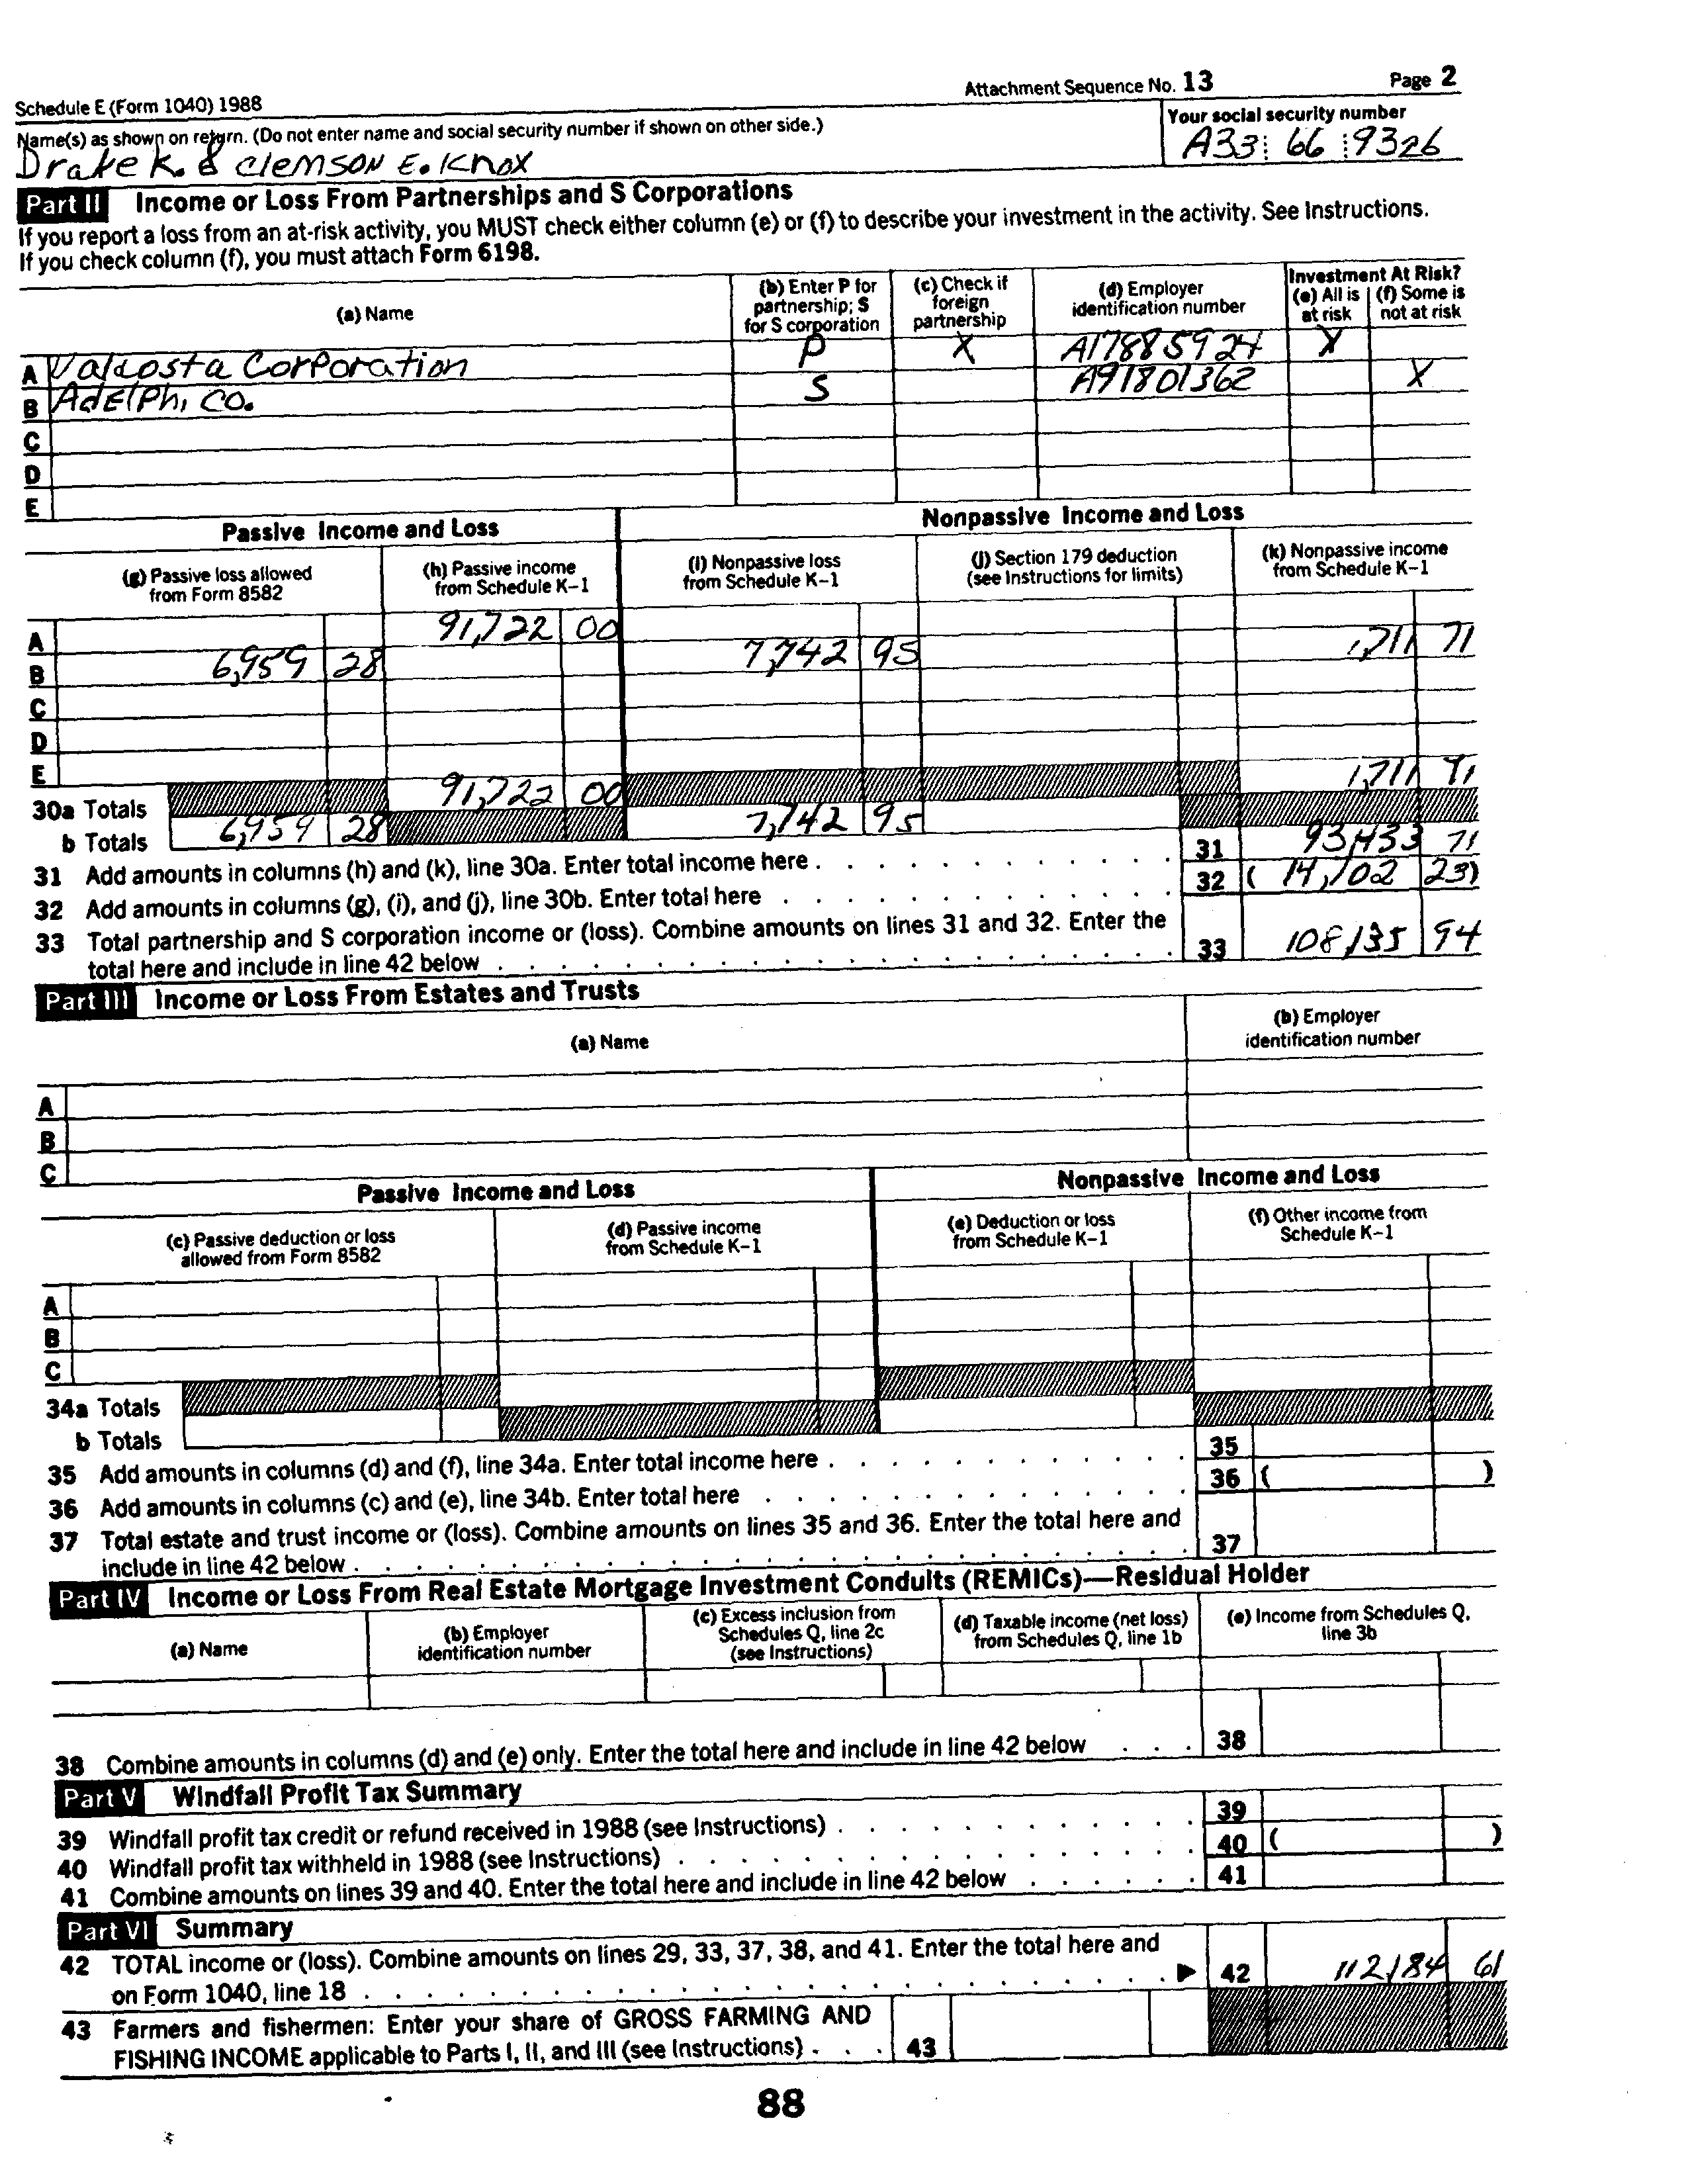 Schedule E (Form 1040) 1988 Attachment Sequence No. 13 Page 2
Name(s) as shown on return. (Do not enter name and social security number if shown on other side.) Your social security number
Drake K. & Clemson E. Knox A33 66 9326
Part II Income or Loss From Partnerships and S Corporations
If you report a loss from an at-risk activity, you MUST check either column (e) or (f) to describe your investment in the activity. See Instructions.
If you check column (f), you must attach Form 6198.
(a) Name (b) Enter P for partnership; S for S corporation (c) Check if foreign partnership (d) Employer identification number Investment At Risk? (e) All is at risk (f) Some is not at risk
A Valcosta Corporation P X A17885924 X
B Adelphi Co. S A91801362 X
C
D
E
Passive Income and Loss Nonpassive Income and Loss
(g) Passive loss allowed from Form 8582 (h) Passive income from Schedule K-1 (i) Nonpassive loss from Schedule K-1 (j) Section 179 deduction (see Instructions for limits) (k) Nonpassive income from Schedule K-1
A 91,722 00
B 6,959 28 7,742 95 1,711 71
C
D
E
30a Totals 91,722 00 1,711 71
b Totals 6,959 28 7,742 95
31 Add amounts in columns (h) and (k), line 30a. Enter total income here . 31 93,433 71
32 Add amounts in columns (g), (i), and (j), line 30b. Enter total here 32 ( 14,702 23)
33 Total partnership and S corporation income or (loss). Combine amounts on lines 31 and 32. Enter the
total here and include in line 42 below 33 108,135 94
Part III Income or Loss From Estates and Trusts
(a) Name (b) Employer identification number
A
B
C
Passive Income and Loss Nonpassive Income and Loss
(c) Passive deduction or loss allowed from Form 8582 (d) Passive income from Schedule K-1 (e) Deduction or loss from Schedule K-1 (f) Other income from Schedule K-1
A
B
C
34a Totals
b Totals
35 Add amounts in columns (d) and (f), line 34a. Enter total income here . 35
36 Add amounts in columns (c) and (e), line 34b. Enter total here 36 ( )
37 Total estate and trust income or (loss). Combine amounts on lines 35 and 36. Enter the total here and
include in line 42 below . 37
Part IV Income or Loss From Real Estate Mortgage Investment Conduits (REMICs)—Residual Holder
(a) Name (b) Employer identification number (c) Excess inclusion from Schedules Q, line 2c (see Instructions) (d) Taxable income (net loss) from Schedules Q, line 1b (e) Income from Schedules Q, line 3b
38 Combine amounts in columns (d) and (e) only. Enter the total here and include in line 42 below 38
Part V Windfall Profit Tax Summary
39 Windfall profit tax credit or refund received in 1988 (see Instructions) . 39
40 Windfall profit tax withheld in 1988 (see Instructions) . 40 ( )
41 Combine amounts on lines 39 and 40. Enter the total here and include in line 42 below 41
Part VI Summary
42 TOTAL income or (loss). Combine amounts on lines 29, 33, 37, 38, and 41. Enter the total here and
on Form 1040, line 18 . ▶ 42 112,184 61
43 Farmers and fishermen: Enter your share of GROSS FARMING AND
FISHING INCOME applicable to Parts I, II, and III (see Instructions) . 43
88